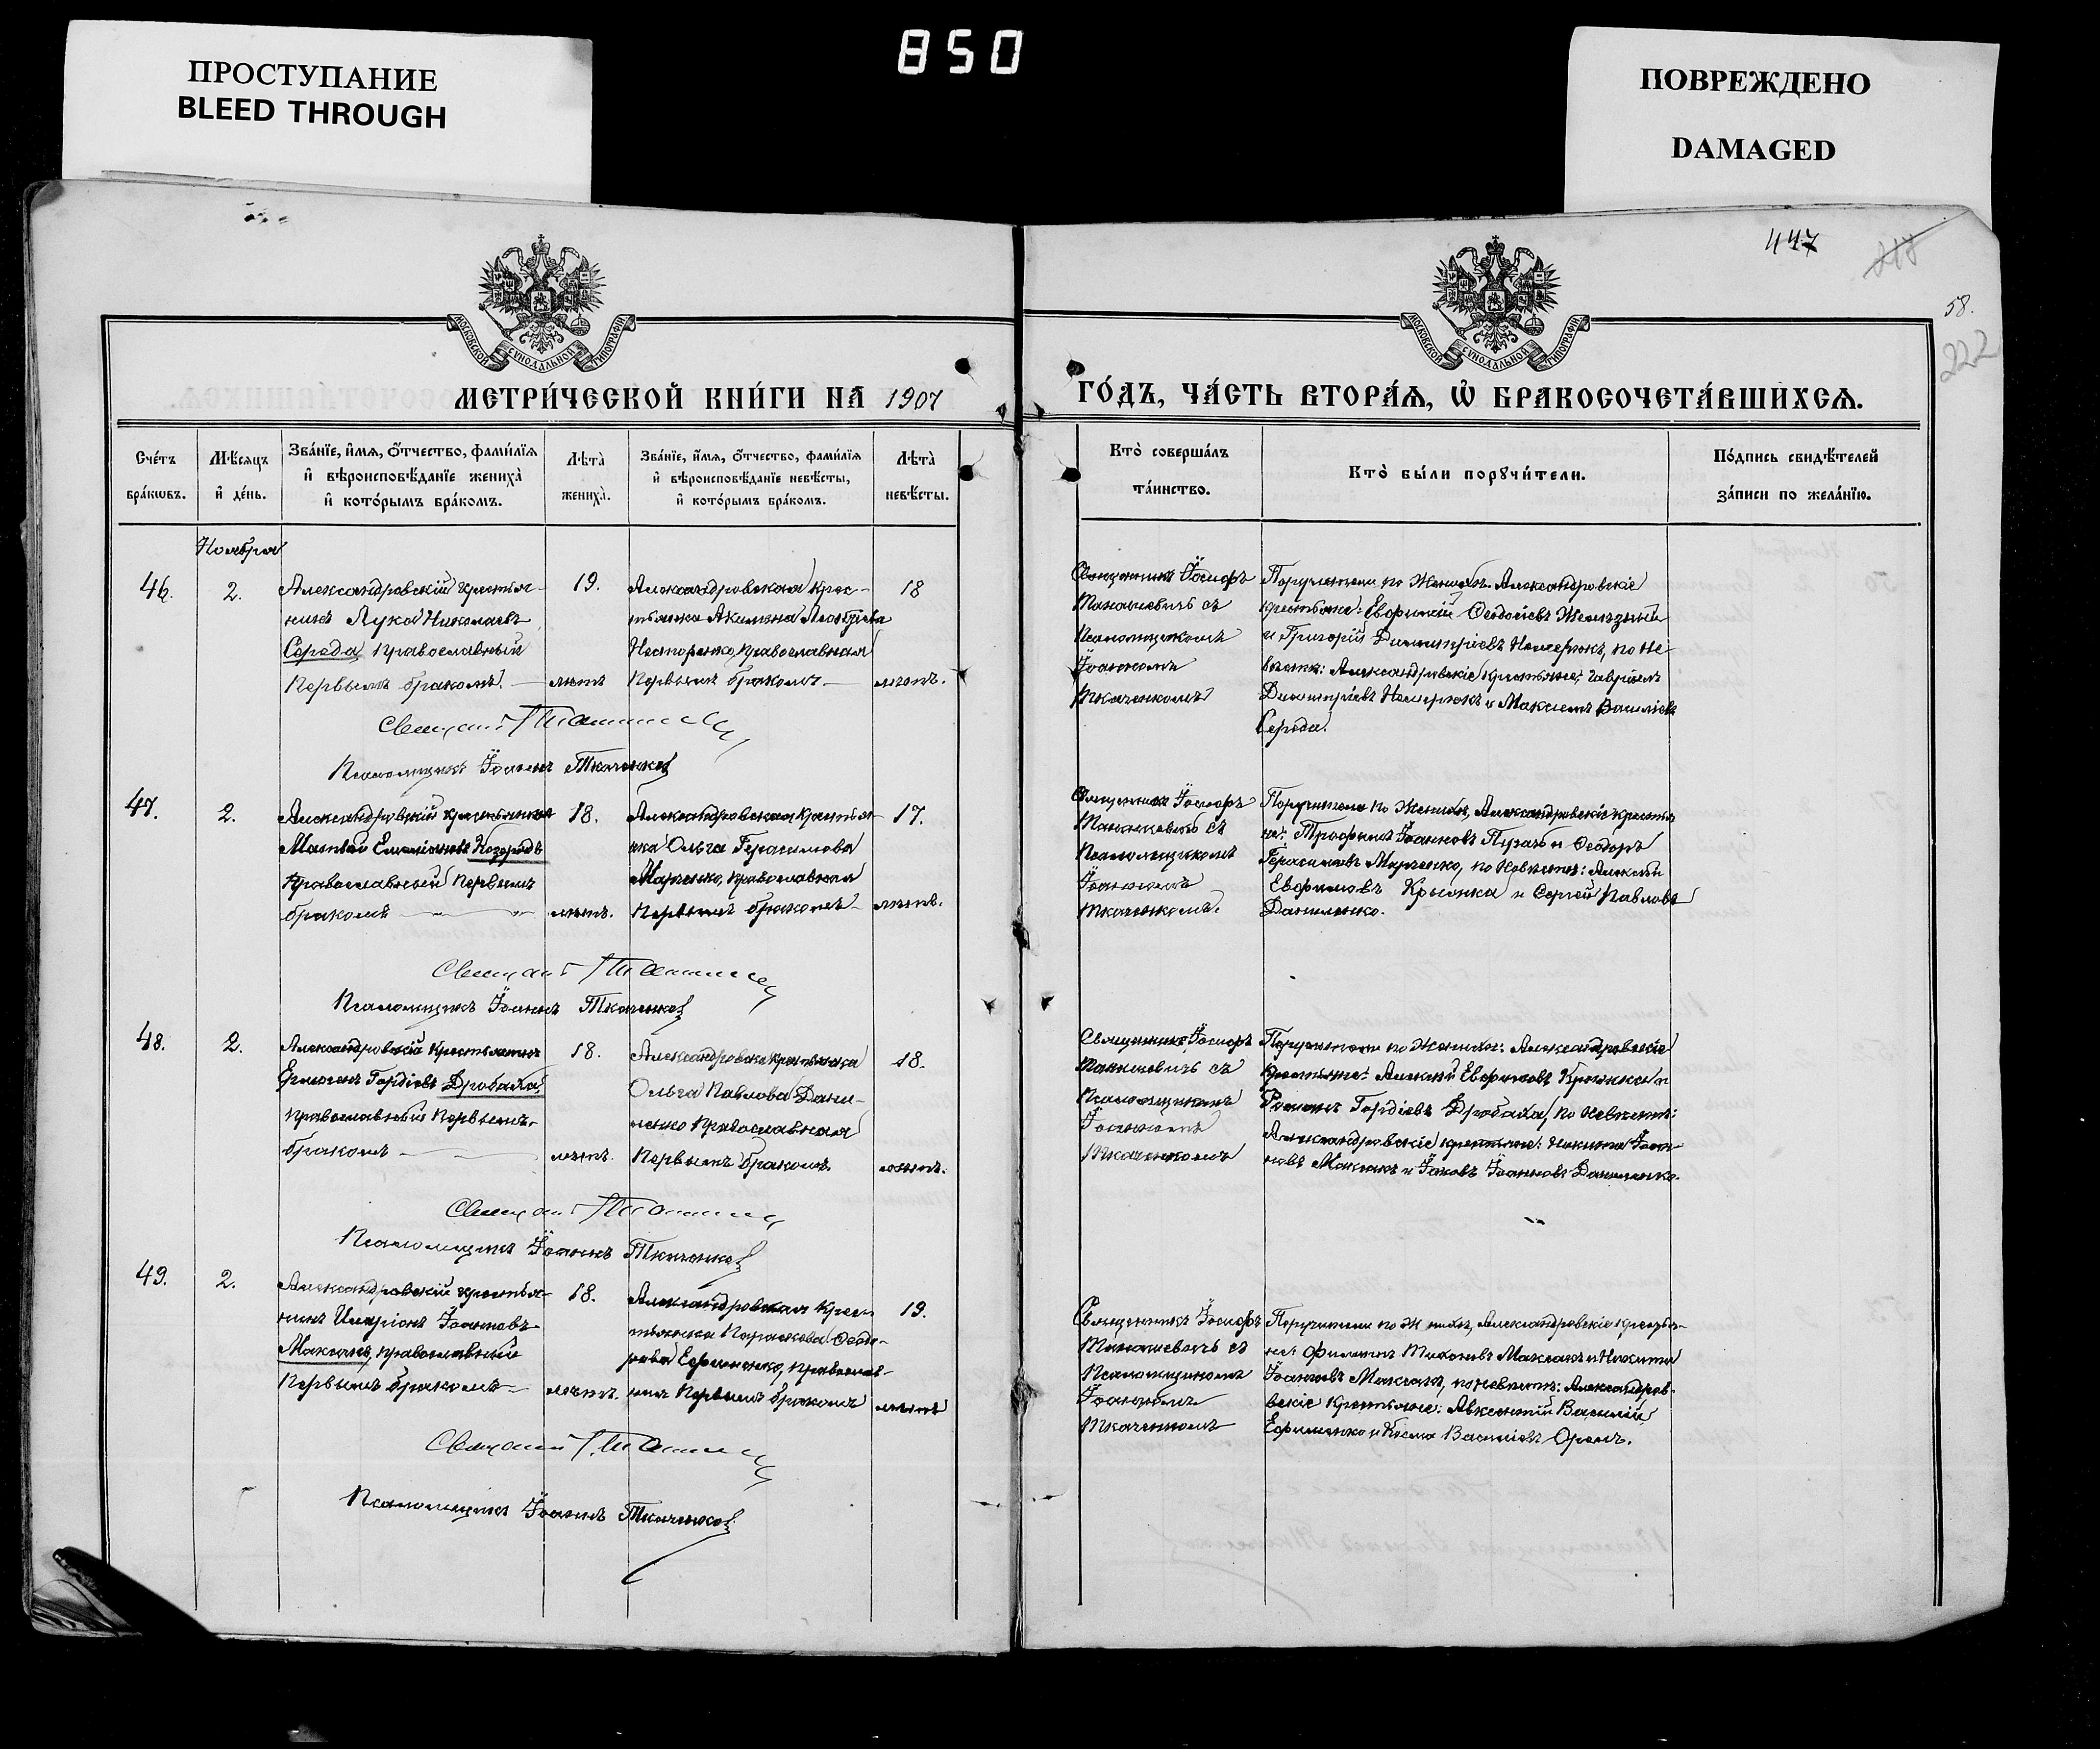 850
ПРОСТУПАНИЕ
BLEED THROUGH
ПОВРЕЖДЕНО
DAMAGED
447
218
58.
222
МОСКОВСКОЙ СѴНОДАЛЬНОЙ ТИПОГРАФІИ
МОСКОВСКОЙ СѴНОДАЛЬНОЙ ТИПОГРАФІИ
МЕТРИ́ЧЕСКОЙ КНИ́ГИ НА 1907
ГО́ДЪ, ЧА́СТЬ ВТОРА́Ѧ, Ѽ БРАКОСОЧЕТА́ВШИХСѦ.
Сче́тъ бра́кѡвъ.
Мѣ́сѧцъ и҆ де́нь.
Зва́нїе, и҆́мѧ, ѻ҆́тчество, фами́лїѧ и҆ вѣроисповѣ́данїе жениха̀ и҆ кото́рымъ бра́комъ.
Лѣ́та̀ жениха̀.
Зва́нїе, и҆́мѧ, ѻ҆́тчество, фами́лїѧ и҆ вѣроисповѣ́данїе невѣ́сты, и҆ кото́рымъ бра́комъ.
Лѣ́та̀ невѣ́сты.
Кто̀ соверша́лъ та́инство.
Кто̀ бы́ли порꙋчи́тели.
По́дпись свидѣ́телей за́писи по жела́нїю.
Ноября
46.
2.
Александровскій крестья-
нинъ Лука Николаевъ
Середа, православный
первымъ бракомъ.
19.
лѣтъ
Александровская крес-
тьянка Акилина
Несторенко, православная
первымъ бракомъ
18
лѣтъ.
Священникъ Іосифъ
съ
Псаломщикомъ
Іоанномъ
Ткаченкомъ
Поручители по женихѣ: Александровскіе
крестьяне: Евфимій Ѳеодосіевъ Желѣзный
и Григорій Димитріевъ по не-
вѣстѣ: Александровскіе крестьяне: Гавріилъ
Димитріевъ и Максимъ Василіевъ
Середа.
Псаломщикъ Іоаннъ Ткаченко
47.
2.
Александровскій крестьянинъ
Матвѣй Емиліановъ
православный первымъ
бракомъ
18.
лѣтъ.
Александровская крестья-
нка Ольга Герасимова
Марченко, православная
первымъ бракомъ
17.
лѣтъ.
Священникъ Іосифъ
съ
Псаломщикомъ
Іоанномъ
Ткаченкомъ.
Поручители по женихѣ, Александровскіе крестья-
не: Трофимъ Іоанновъ и Ѳеодоръ
Герасимовъ Марченко, по невѣстѣ: Алексѣй
Евфимовъ и Сергѣй Павловъ
Даниленко.
Псаломщикъ Іоаннъ Ткаченко
48.
2.
Александровскій крестьянинъ
Гордіевъ Дробаха,
православный первымъ
бракомъ
18.
лѣтъ.
Александровск. крестьянка
Ольга Павлова Дани-
ленко православная
первымъ бракомъ
18.
лѣтъ.
Священникъ Іосифъ
съ
Псаломщикомъ
Іоанномъ
Ткаченкомъ
Поручители по женихѣ: Александровскіе
крестьяне: Алексѣй Евфимовъ и
Романъ Гордіевъ Дробаха, по невѣстѣ:
Александровскіе крестьяне: Никита Іоан-
новъ Максакъ и Іаковъ Іоанновъ Даниленко.
Псаломщикъ Іоаннъ Ткаченко
49.
2.
Александровскій крестья-
нинъ Иларіонъ Іоанновъ
Максакъ, православный
первымъ бракомъ
18.
лѣтъ.
Александровская крес-
тьянка Параскева Ѳеодо-
рова Ефименко, православ-
ная первымъ бракомъ
19.
лѣтъ
Священникъ Іосифъ
съ
Псаломщикомъ
Іоанномъ
Ткаченкомъ
Поручители по женихѣ, Александровскіе крестья-
не: Филиппъ Тихоновъ Максакъ и Никита
Іоанновъ Максакъ, по невѣстѣ: Александров-
вскіе крестьяне: Авксентій Василіевъ
Ефименко и Косма Василіевъ
Псаломщикъ Іоаннъ Ткаченко